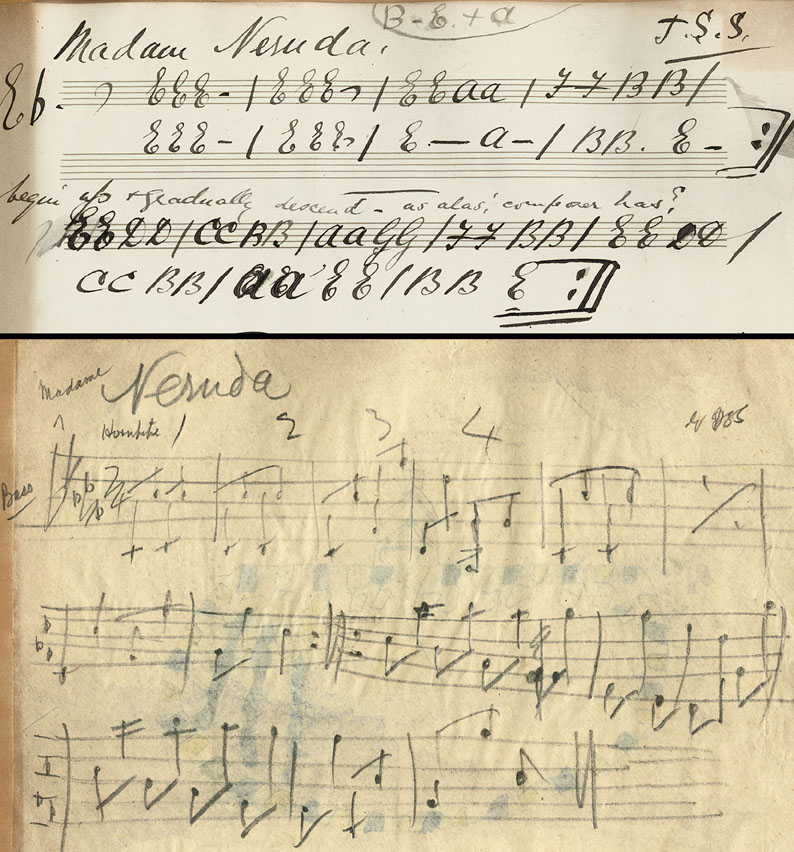 B - E. + a
J.S.S.
Madam Neruda.
E♭. EEE - | EEE | EEaa | FF BB |
EEE - | EEE | E — a - | BB. E - :||
begin up + gradually descend - as alas! composer has?
EE DD | CC BB | aa GG | FF BB | EE DD |
CC BB | aa EE | BB E :||
Madame Neruda
Hornpipe 1 2 3 4
Bass
2/4